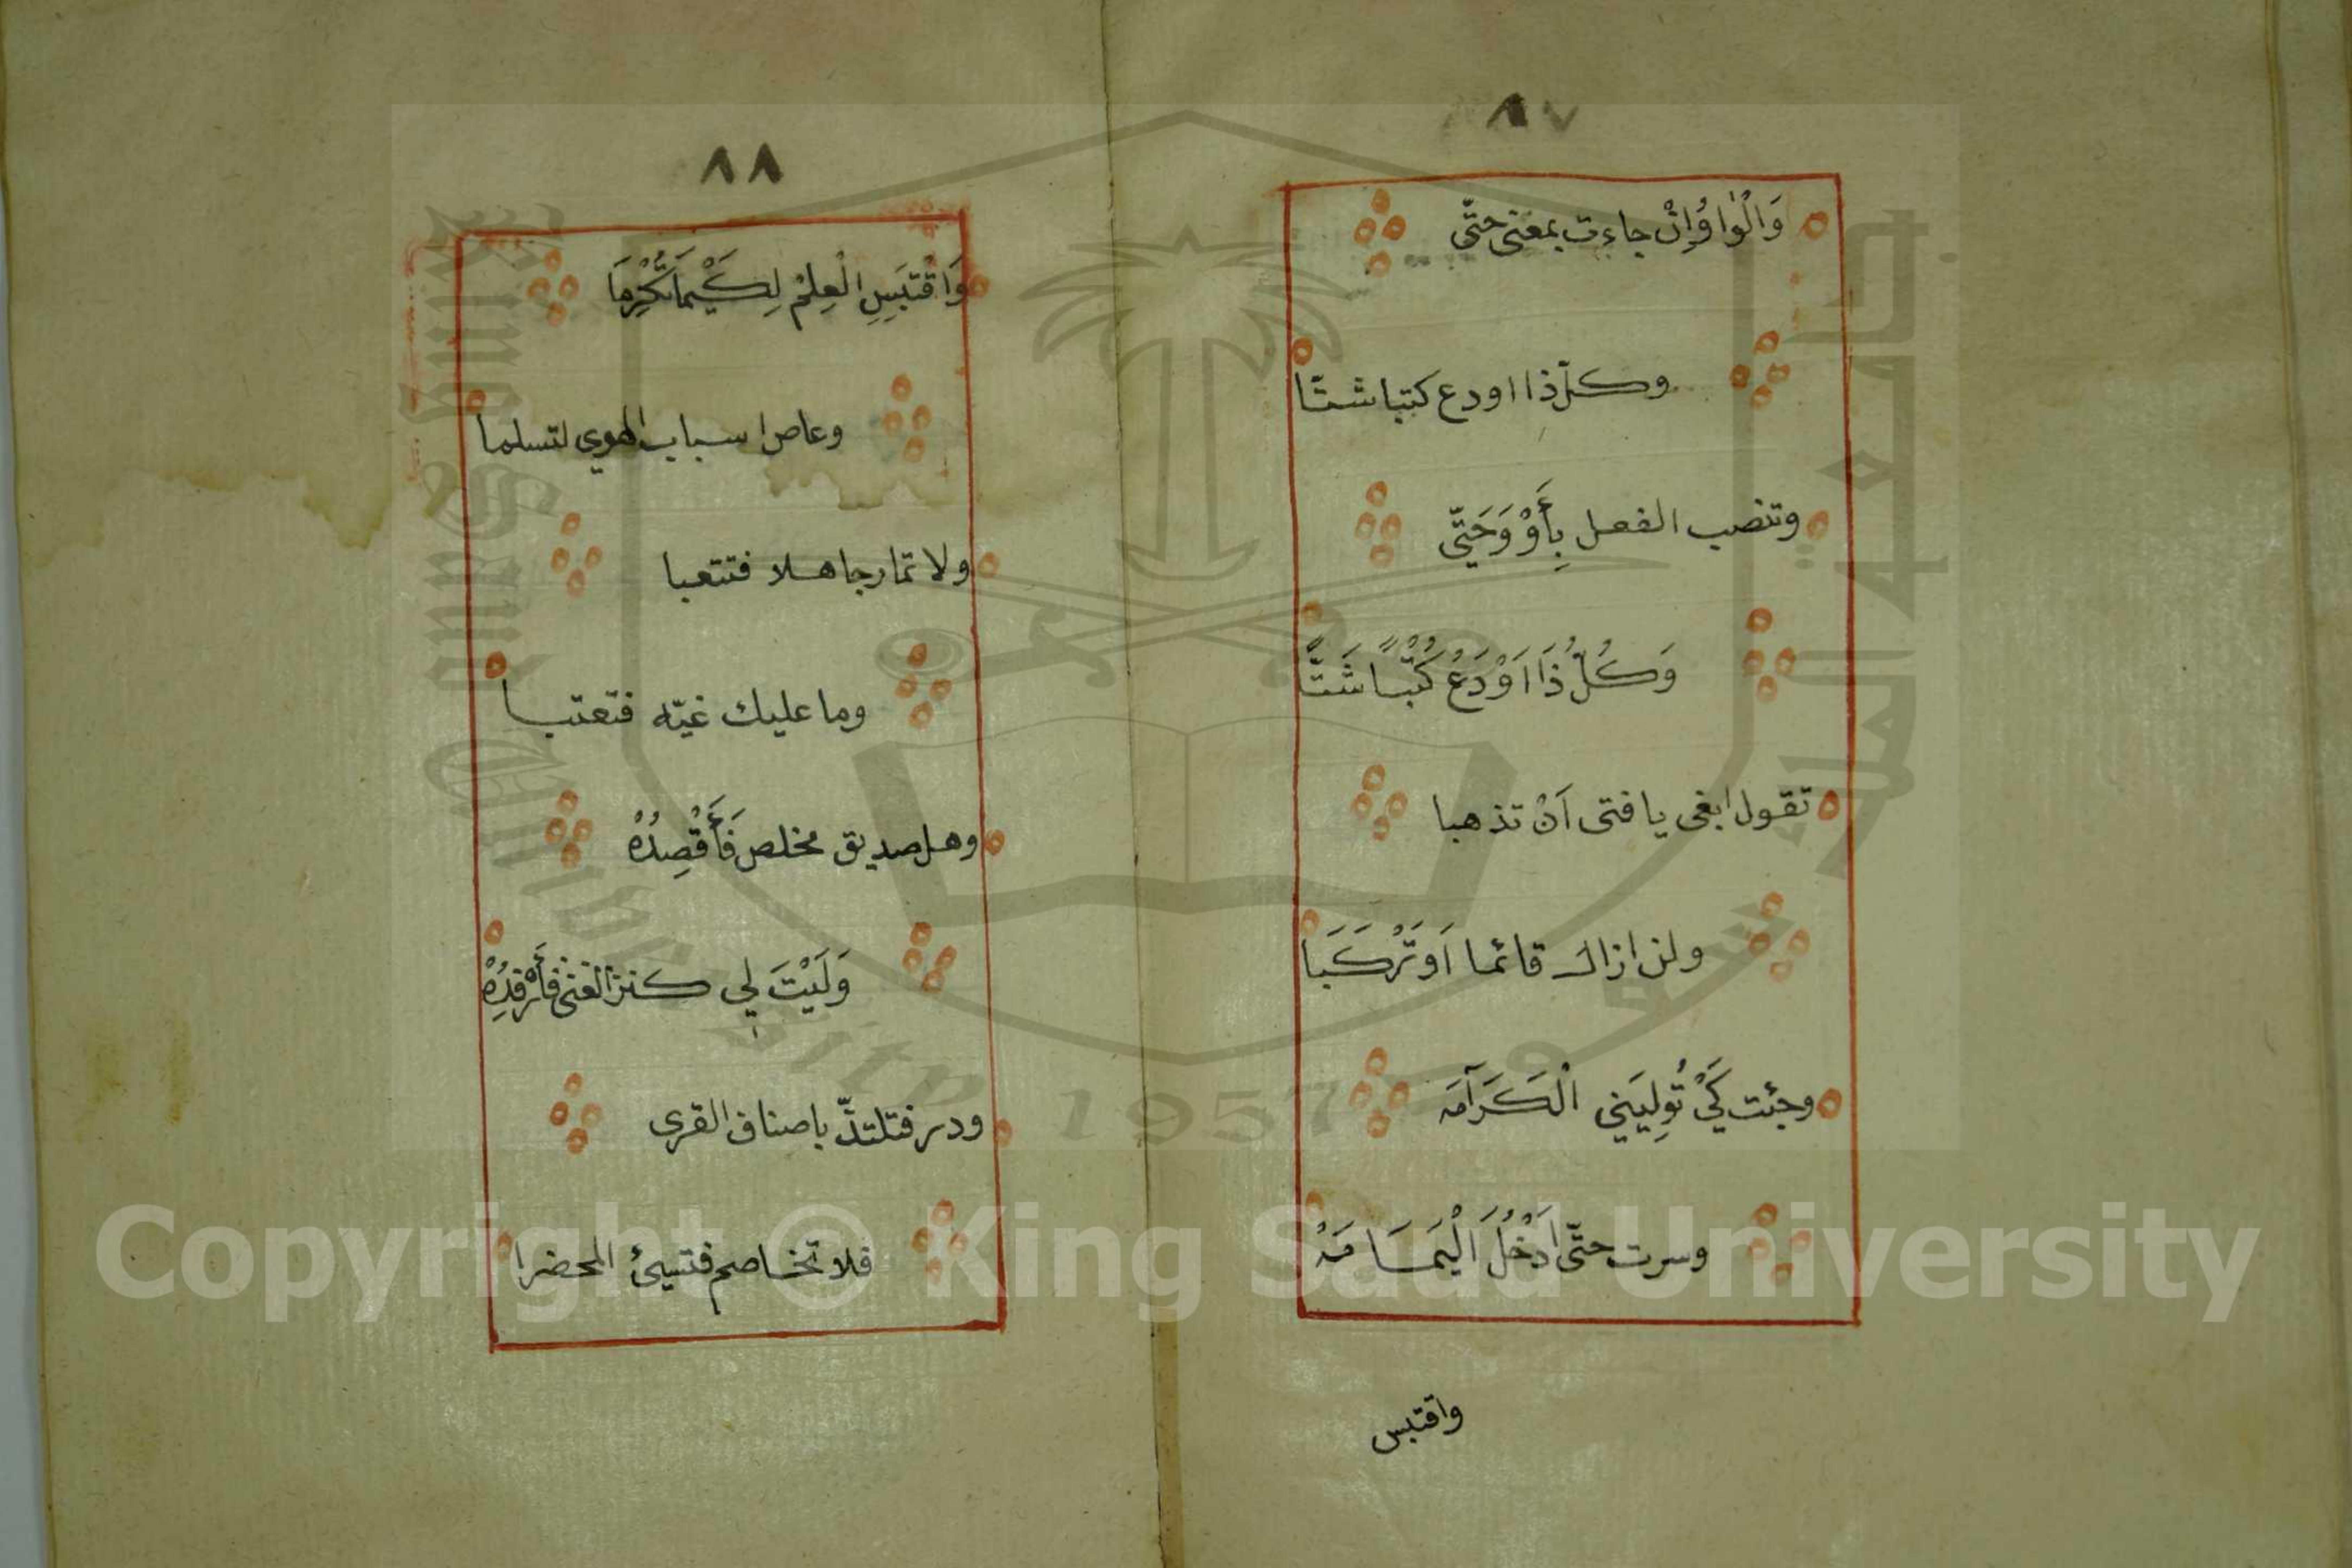 ٨٧
وَالْوَاوُ إِنْ جاءت بمعنى حتّى
وكلّ ذا اودع كتبا شتّا
وتنصب الفعل بِأَوْ وَحَتّى
وَكُلُّ ذَا اَوْدَعُ كُتْباً شَتَّا
تقول ابغى يا فتى اَنْ تذهبا
ولن ازال قائما اَو تَرْكَبَا
وجئت كَيْ تُولِيَنِي الْكَرَامَه
وسرت حتّى اَدْخُلَ الْيَمَامَهْ
واقتبس
٨٨
وَاقْتَبِسِ الْعِلْمَ لِكَيْمَا تُكْرَمَا
وعاص اسباب الهوي لتسلما
ولا تمار جاهلا فتتعبا
وما عليك غيّه فتعتبا
وهل صديق مخلص فَأَقْصِدُهْ
وَلَيْتَ لي كنز الغنى فَأَرْفِدُهْ
وزر فتلتذّ باصناف القرى
فلا تخاصم فتسيئ المحضرا
Copyright © King Saud University
King Saud University
جامعة الملك سعود
1957